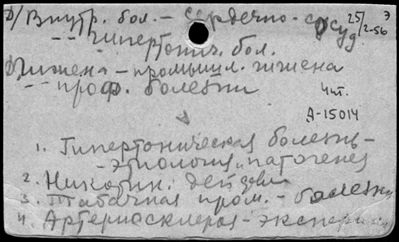 Д/Внутр. бол. - сердечно-сосуд 25/2-56 э
-- гипертонич. бол.
Д/гигиена - промышл. гигиена
-- проф. болезни
чит.
А-15014
1. Гипертоническая болезнь -
- этиология, патогенез
2. Никотин. действие
3. Табачная пром. - болезни
4. Артериосклероз - эксперим